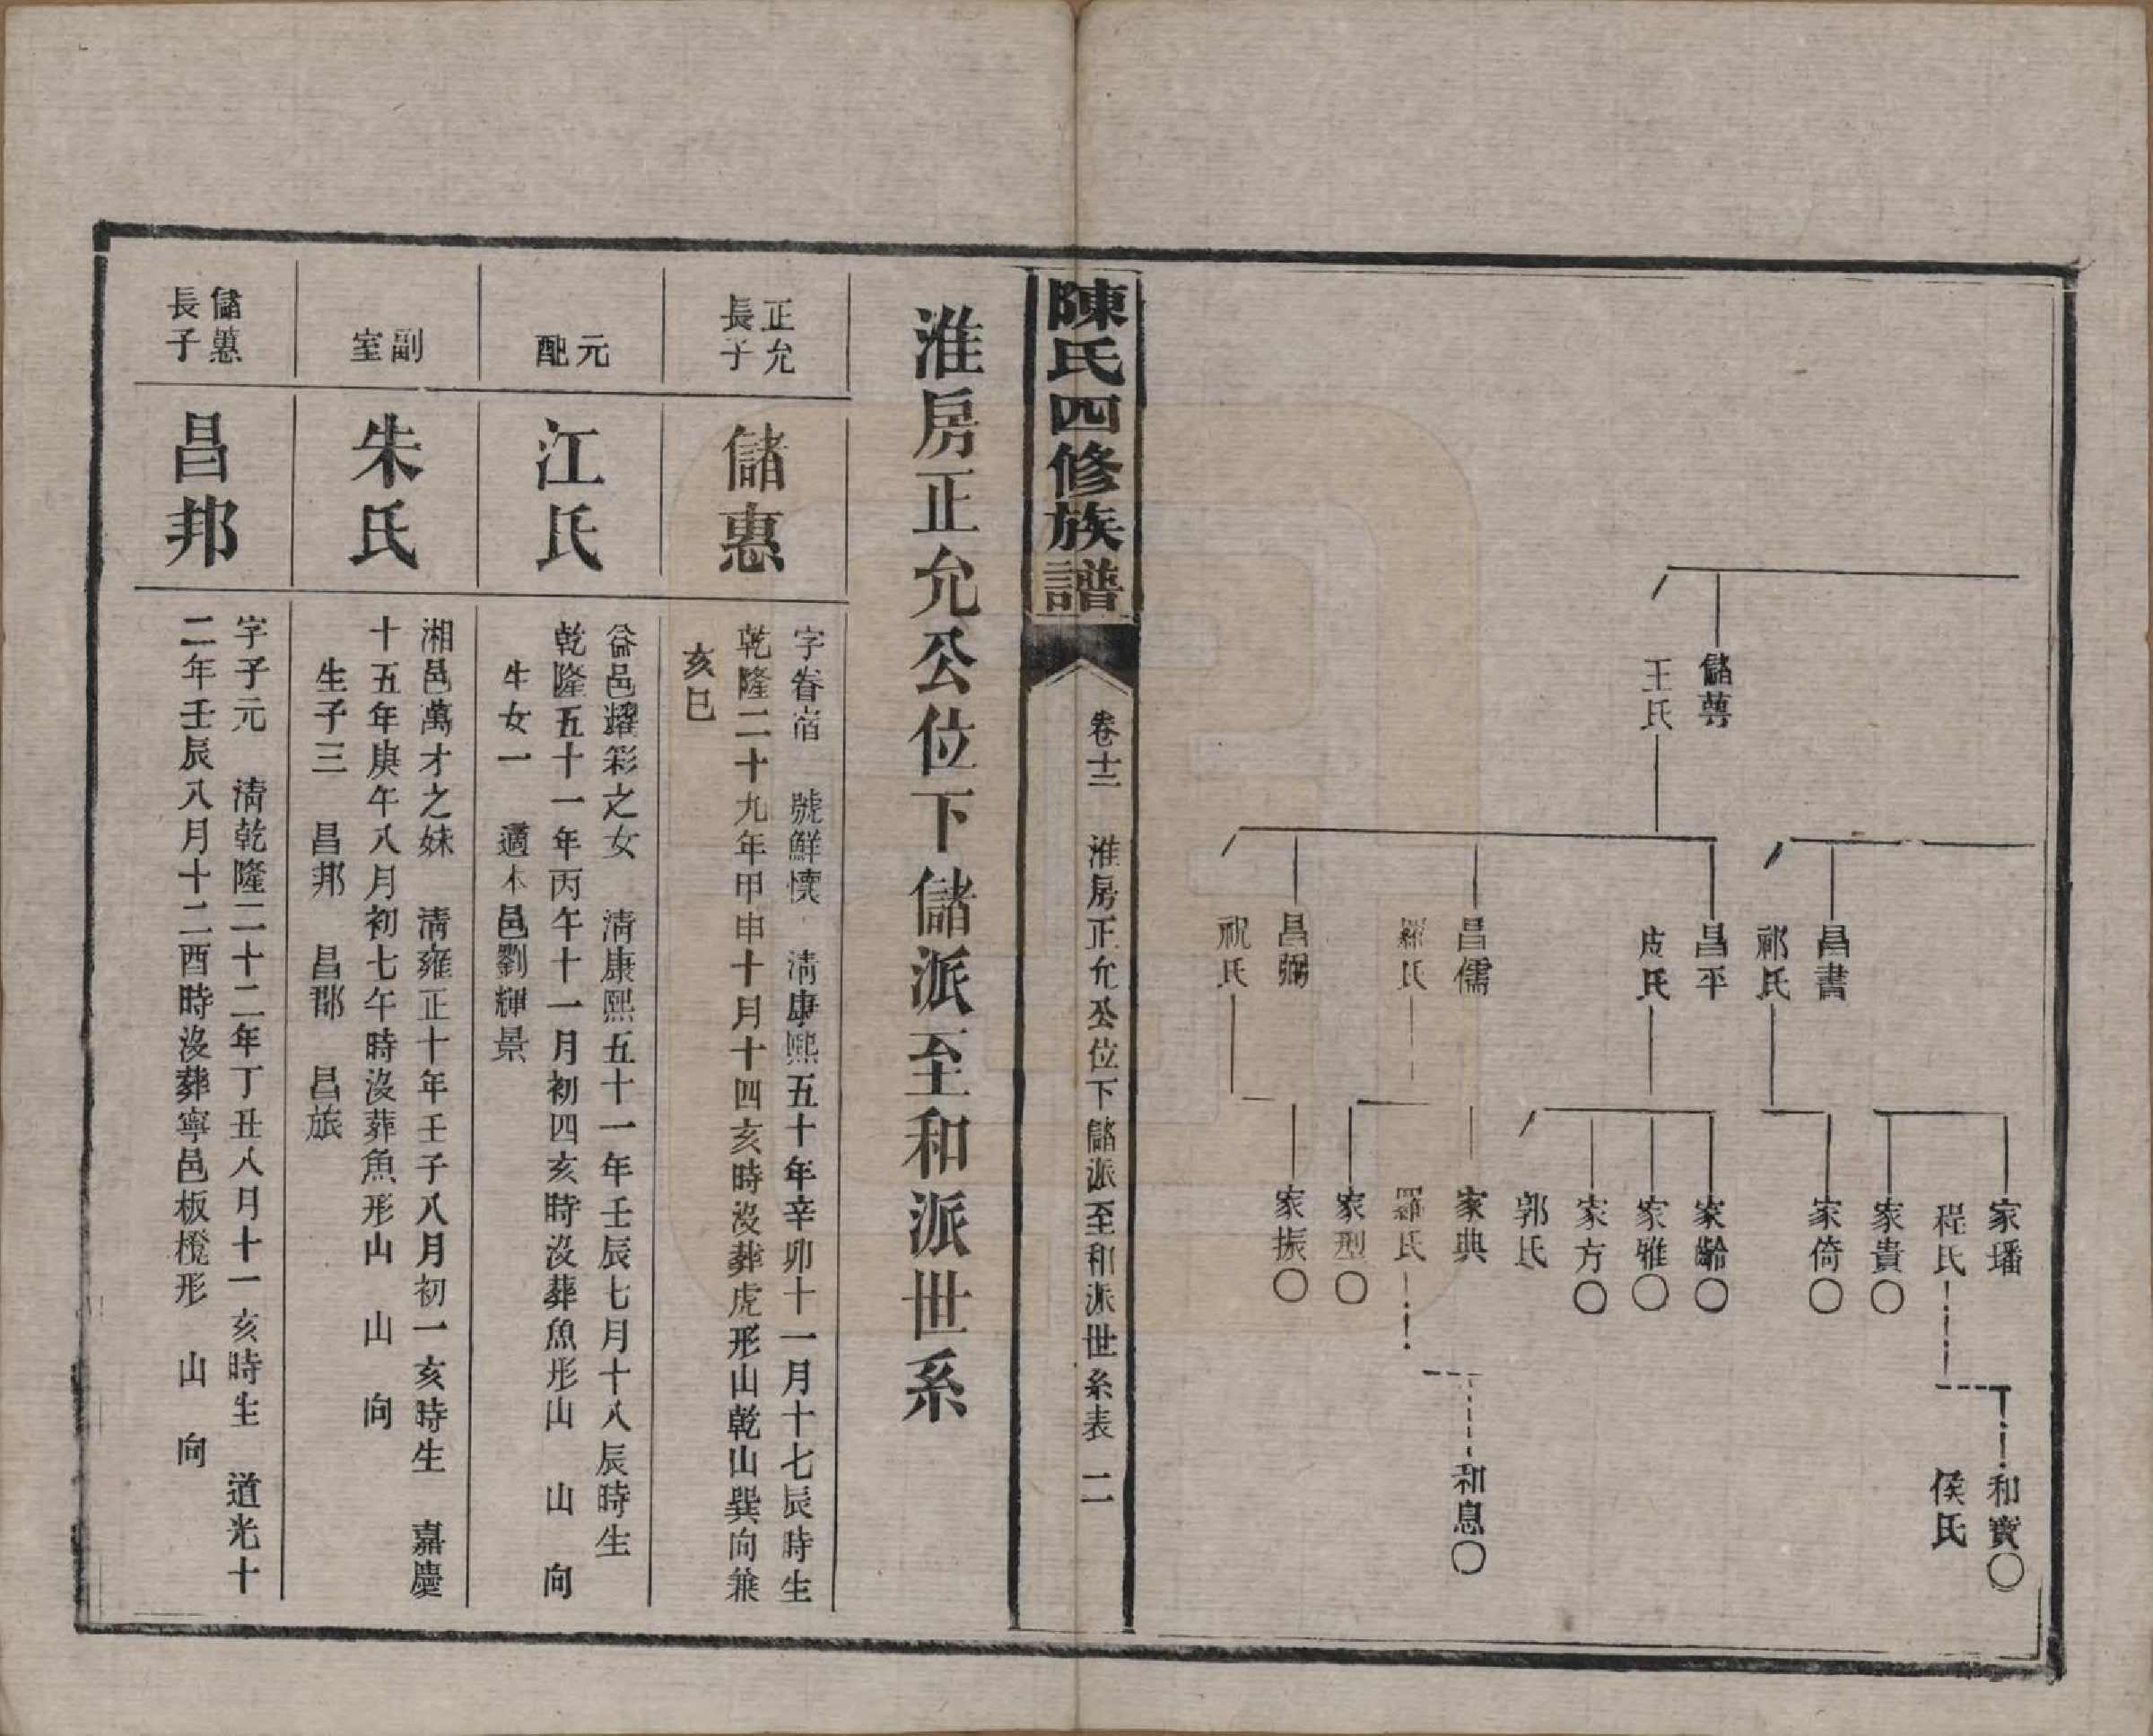 儲蕚
王氏
昌書
祁氏
昌平
皮氏
昌儒
羅氏
昌弼
祝氏
家璠
程氏
家貴〇
家倚〇
家齡〇
家雅〇
家方〇
郭氏
家典
羅氏
家型〇
家振〇
和寳〇
侯氏
和息〇
陳氏四修族譜
卷十二 淮房正允公位下儲派至和派世系表 二
淮房正允公位下儲派至和派世系
正允
長子
儲惠
字眷宿 號鮮懐 淸康熙五十年辛卯十一月十七辰時生
乾隆二十九年甲申十月十四亥時沒葬虎形山乾山巽向兼
亥巳
元
配
江氏
益邑躍彩之女 淸康熙五十一年壬辰七月十八辰時生
乾隆五十一年丙午十一月初四亥時沒葬魚形山 山 向
生女一 適本邑劉輝景
副
室
朱氏
湘邑萬才之妹 淸雍正十年壬子八月初一亥時生 嘉慶
十五年庚午八月初七午時沒葬魚形山 山 向
生子三 昌邦 昌郡 昌旅
儲惠
長子
昌邦
字子元 淸乾隆二十二年丁丑八月十一亥時生 道光十
二年壬辰八月十二酉時沒葬寧邑板櫈形 山 向